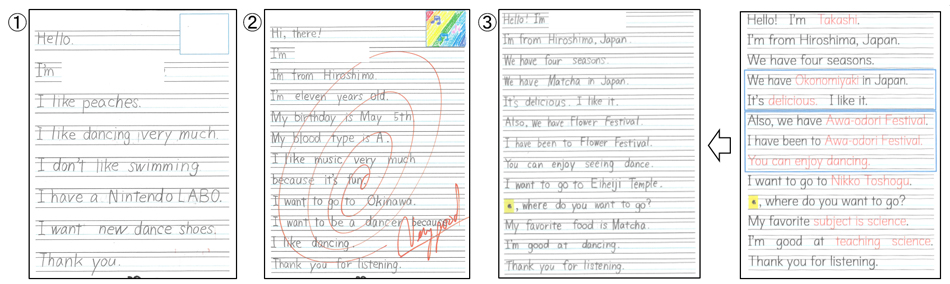 ①
Hello.
I'm
I like peaches.
I like dancing very much.
I don't like swimming
I have a Nintendo LABO.
I want new dance shoes.
Thank you.
②
Hi, there!
I'm
I'm from Hiroshima.
I'm eleven years old.
My birthday is May 5th
My blood type is A.
I like music very much
because it's fun.
I want to go to Okinawa.
I want to be a dancer because
I like dancing.
Thank you for listening.
Very good
③
Hello! I'm
I'm from Hiroshima, Japan.
We have four seasons.
We have Matcha in Japan.
It's delicious. I like it.
Also, we have Flower Festival.
I have been to Flower Festival.
You can enjoy seeing dance.
I want to go to Eiheiji Temple.
, where do you want to go?
My favorite food is Matcha.
I'm good at dancing.
Thank you for listening.
Hello! I'm Takashi.
I'm from Hiroshima, Japan.
We have four seasons.
We have Okonomiyaki in Japan.
It's delicious. I like it.
Also, we have Awa-odori Festival.
I have been to Awa-odori Festival.
You can enjoy dancing.
I want to go to Nikko Toshogu.
, where do you want to go?
My favorite subject is science.
I'm good at teaching science.
Thank you for listening.